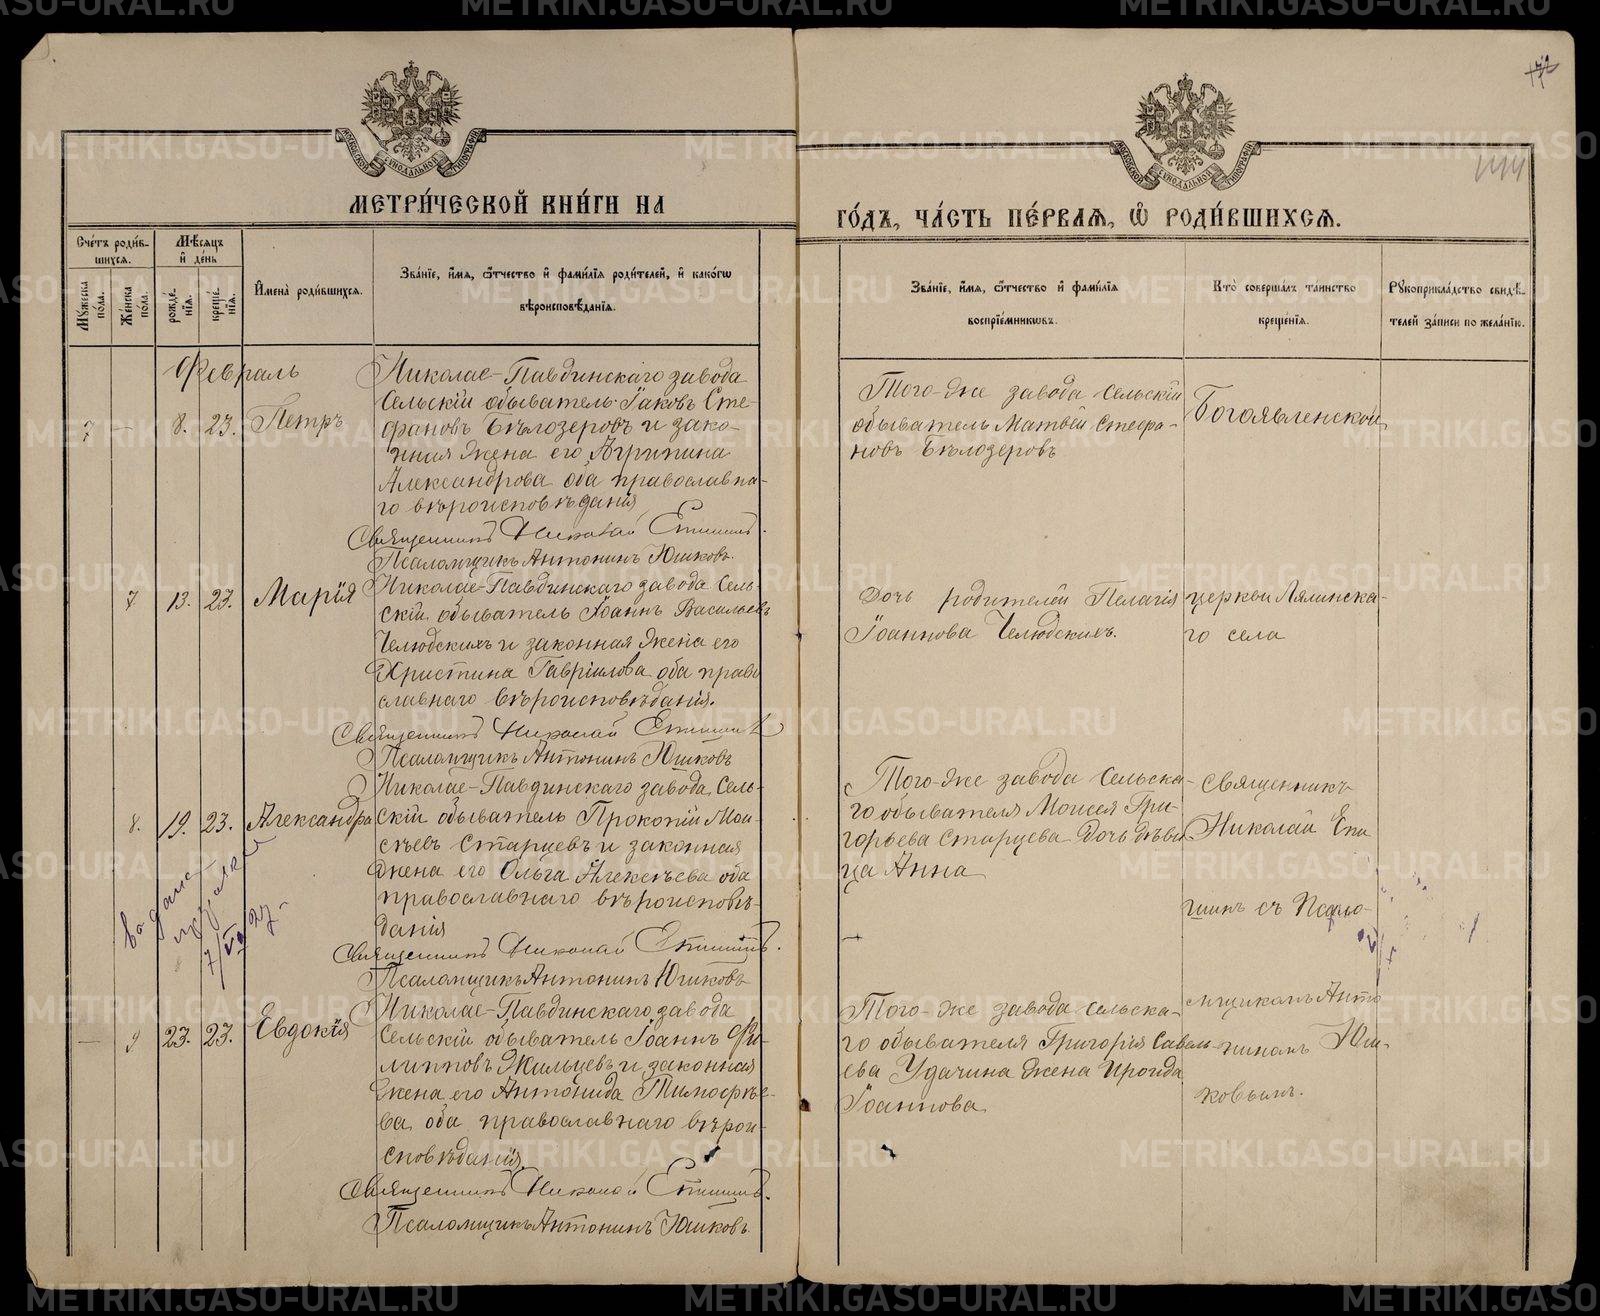 МЕТРИ́ЧЕСКОЙ КНИ́ГИ НА
ГО́ДЪ, ЧА́СТЬ ПЕ́РВАѦ, Ѡ҆ РОДИ́ВШИХСѦ.
МОСКОВСКОЙ СѴНОДАЛЬНОЙ ТИПОГРАФІИ
Сче́тъ роди́в-
шихся.
Мѣсяцъ
и҆ де́нь
Мꙋжеска
по́ла.
Же́нска
по́ла.
рожде́-
нїя.
креще́-
нїя.
И҆мена̀ роди́вшихся.
Зва́нїе, и҆́мя, ѻ҆́тчество и҆ фами́лїя роди́телей, и҆ како́гѡ
вѣроисповѣ́данїя.
Зва́нїе, и҆́мя, ѻ҆́тчество и҆ фами́лїя
воспрїе́мникѡвъ.
Кто̀ соверша́лъ та́инство
креще́нїя.
Рꙋкоприкла́дство свидѣ́-
телей за́писи по жела́нїю.
Февраль
7 — 8. 23. Петръ
Николае-Павдинскаго завода
Сельскій обыватель Іаковъ Сте-
фановъ Бѣлозеровъ и зако-
нная жена его Агрипина
Александрова оба православна-
го вѣроисповѣданія
Священникъ Николай Епишинъ.
Псаломщикъ Антонинъ Юшковъ.
Того-же завода Сельскій
обыватель Матвѣй Стефа-
новъ Бѣлозеровъ
Богоявленской
7 13. 23. Марія
Николае-Павдинскаго завода Сель-
скій обыватель Іоаннъ Васильевъ
Челюдскихъ и законная жена его
Христина Гавріилова оба право
славнаго вѣроисповѣданія.
Священникъ Николай Епишинъ
Псаломщикъ Антонинъ Юшковъ
Дочь родителей Пелагія
Іоаннова Челюдскихъ.
церкви Лялинска-
го села
8. 19. 23. Александра
Николае-Павдинскаго завода Сель-
скій обыватель Прокопій Мои-
сѣевъ Старцевъ и законная
жена его Ольга Алексѣева оба
православнаго вѣроисповѣ-
данія
Священникъ Николай Епишинъ.
Псаломщикъ Антонинъ Юшковъ
Того-же завода Сельска-
го обывателя Моисея Гри-
горьева Старцева дочь дѣви
ца Анна
священникъ
Николай Епи
шинъ съ Псало-
9 23. 23. Евдокія
Николае-Павдинскаго завода
Сельскій обыватель Іоаннъ Фи-
липповъ Жильцевъ и законная
жена его Антонида Тимофѣе-
ва оба православнаго вѣрои-
сповѣданія.
Священникъ Николай Епишинъ.
Псаломщикъ Антонинъ Юшковъ.
Того-же завода Сельска-
го обывателя Григорія Савель-
ева Удачина жена Ироида
Іоаннова
мщикомъ Анто
ниномъ Юш-
ковымъ.
METRIKI.GASO-URAL.RU